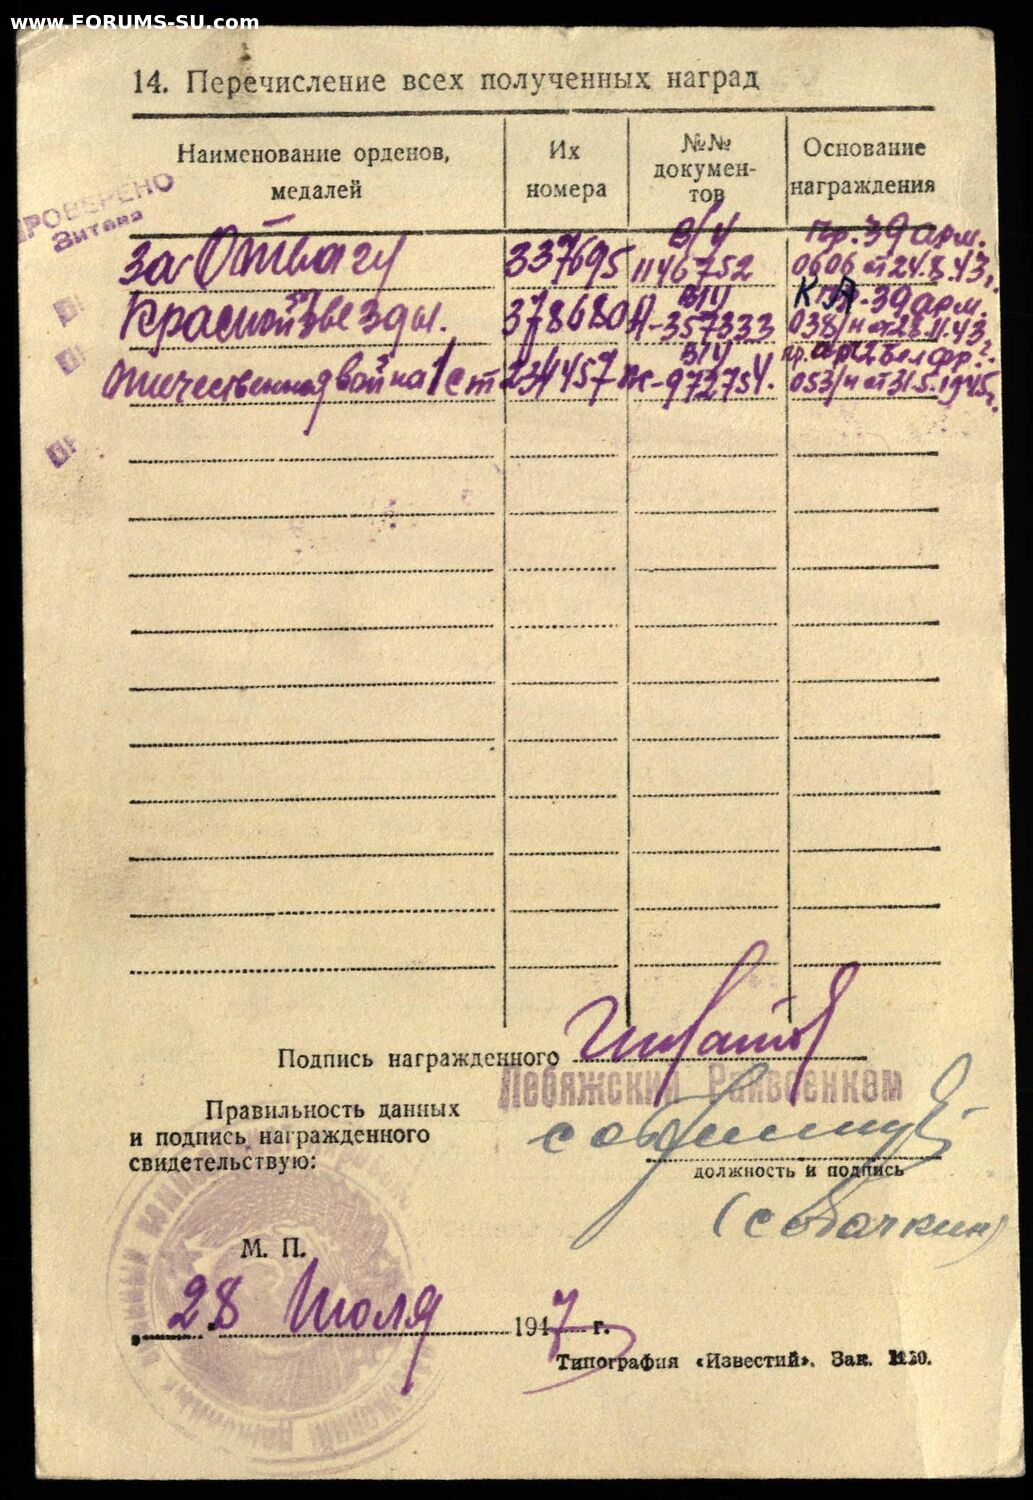 www.FORUMS-SU.com
14. Перечисление всех полученных наград
Наименование орденов, медалей
Их номера
№№ документов
Основание награждения
ПРОВЕРЕНО
за Отвагу 337695 в/ч 1146752 Пр. 39 арм. 0606 от 24.8.43г.
Красной звезды. 378680 А-357333 39 арм. 038/н от 28.11.43г.
Отечественная война 1 ст 234457 Ж-972754. 053/н от 31.5.1945г.
Подпись награжденного
Лебяжский Райвоенком
Правильность данных
и подпись награжденного
свидетельствую:
должность и подпись
(Собачкин)
М. П.
28 Июля 1947 г.
Типография «Известий». Зак.